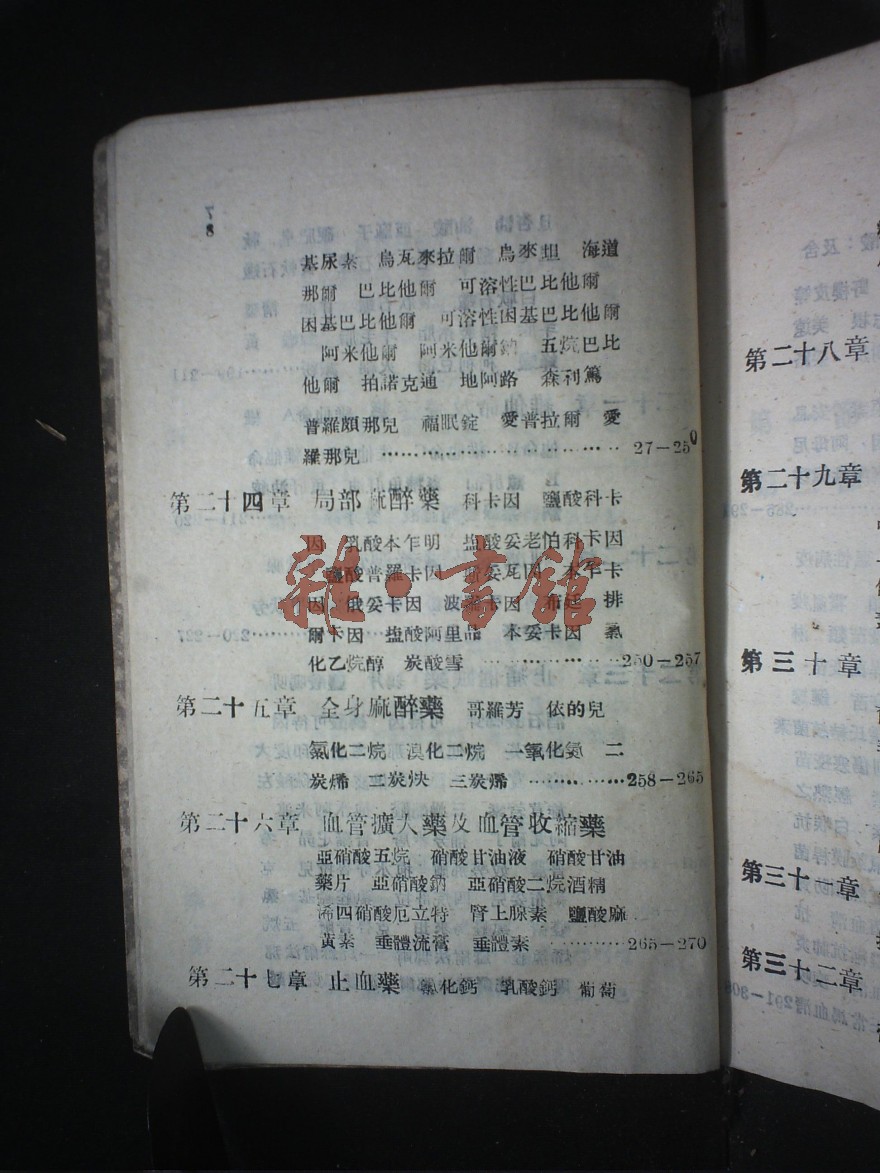 8
基尿素 烏瓦來拉爾 烏來坦 海道
那爾 巴比他爾 可溶性巴比他爾
困基巴比他爾 可溶性困基巴比他爾
阿米他爾 阿米他爾鈉 五烷巴比
他爾 拍諾克通 地阿路 森利篤
普羅頗那兒 福眠錠 愛普拉爾 愛
羅那兒 ⋯⋯⋯⋯⋯⋯⋯⋯ 27—250
第二十四章 局部麻醉藥 科卡因 鹽酸科卡
因 乳酸本乍明 塩酸妥老怕科卡因
鹽酸普羅卡因 妥瓦因 本乍卡
因 俄妥卡因 波 卡因 布廷 排
爾卡因 塩酸阿里品 本妥卡因 氯
化乙烷醇 炭酸雪 ⋯⋯⋯⋯⋯⋯250—257
第二十五章 全身麻醉藥 哥羅芳 依的兒
氯化二烷 溴化二烷 一氧化氮 二
炭烯 二炭炔 三炭烯 ⋯⋯⋯⋯⋯258—265
第二十六章 血管擴大藥及血管收縮藥
亞硝酸五烷 硝酸甘油液 硝酸甘油
藥片 亞硝酸鈉 亞硝酸二烷酒精
浠四硝酸厄立特 腎上腺素 鹽酸麻
黃素 垂體流膏 垂體素 ⋯⋯⋯⋯265—270
第二十七章 止血藥 氯化鈣 乳酸鈣 葡萄
雜·書館
第二十八章
第二十九章
第三十章
第三十一章
第三十二章